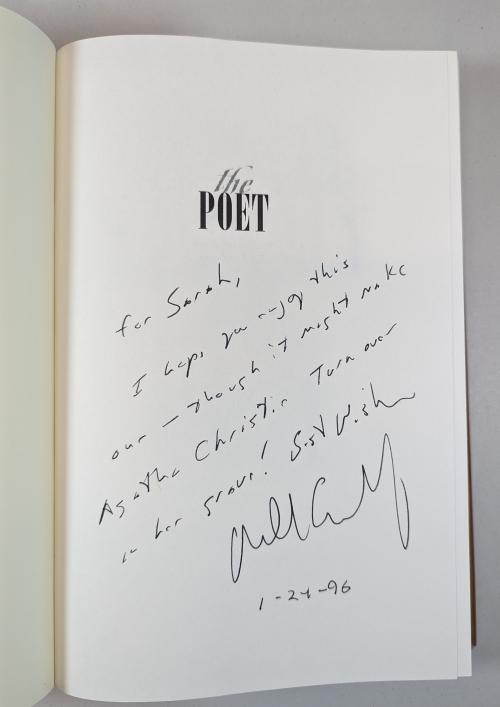 the
POET
for Sarah,
I hope you enjoy this
one — though it might make
Agatha Christie Turn over
in her grave! Best Wishes
1-24-96